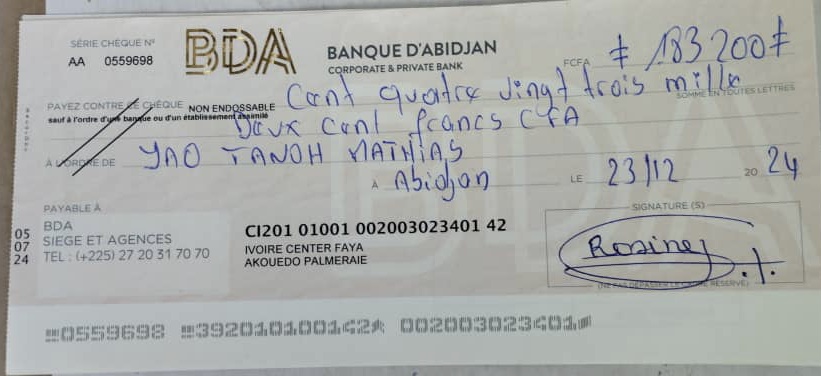 SÉRIE CHÈQUE N°
AA 0559698
BDA
BANQUE D'ABIDJAN
CORPORATE & PRIVATE BANK
FCFA # 183 200 #
PAYEZ CONTRE CE CHÈQUE NON ENDOSSABLE Cent quatre vingt trois mille
sauf à l'ordre d'une banque ou d'un établissement assimilé
SOMME EN TOUTES LETTRES
Deux cent francs CFA
À L'ORDRE DE YAO TANOH MATHIAS
À Abidjan LE 23/12 20 24
PAYABLE À
BDA
SIEGE ET AGENCES
TEL : (+225) 27 20 31 70 70
05
07
24
CI201 01001 002003023401 42
IVOIRE CENTER FAYA
AKOUEDO PALMERAIE
SIGNATURE (S)
(NE PAS DÉPASSER LE CADRE RÉSERVÉ)
0559698 392010100142 002003023401